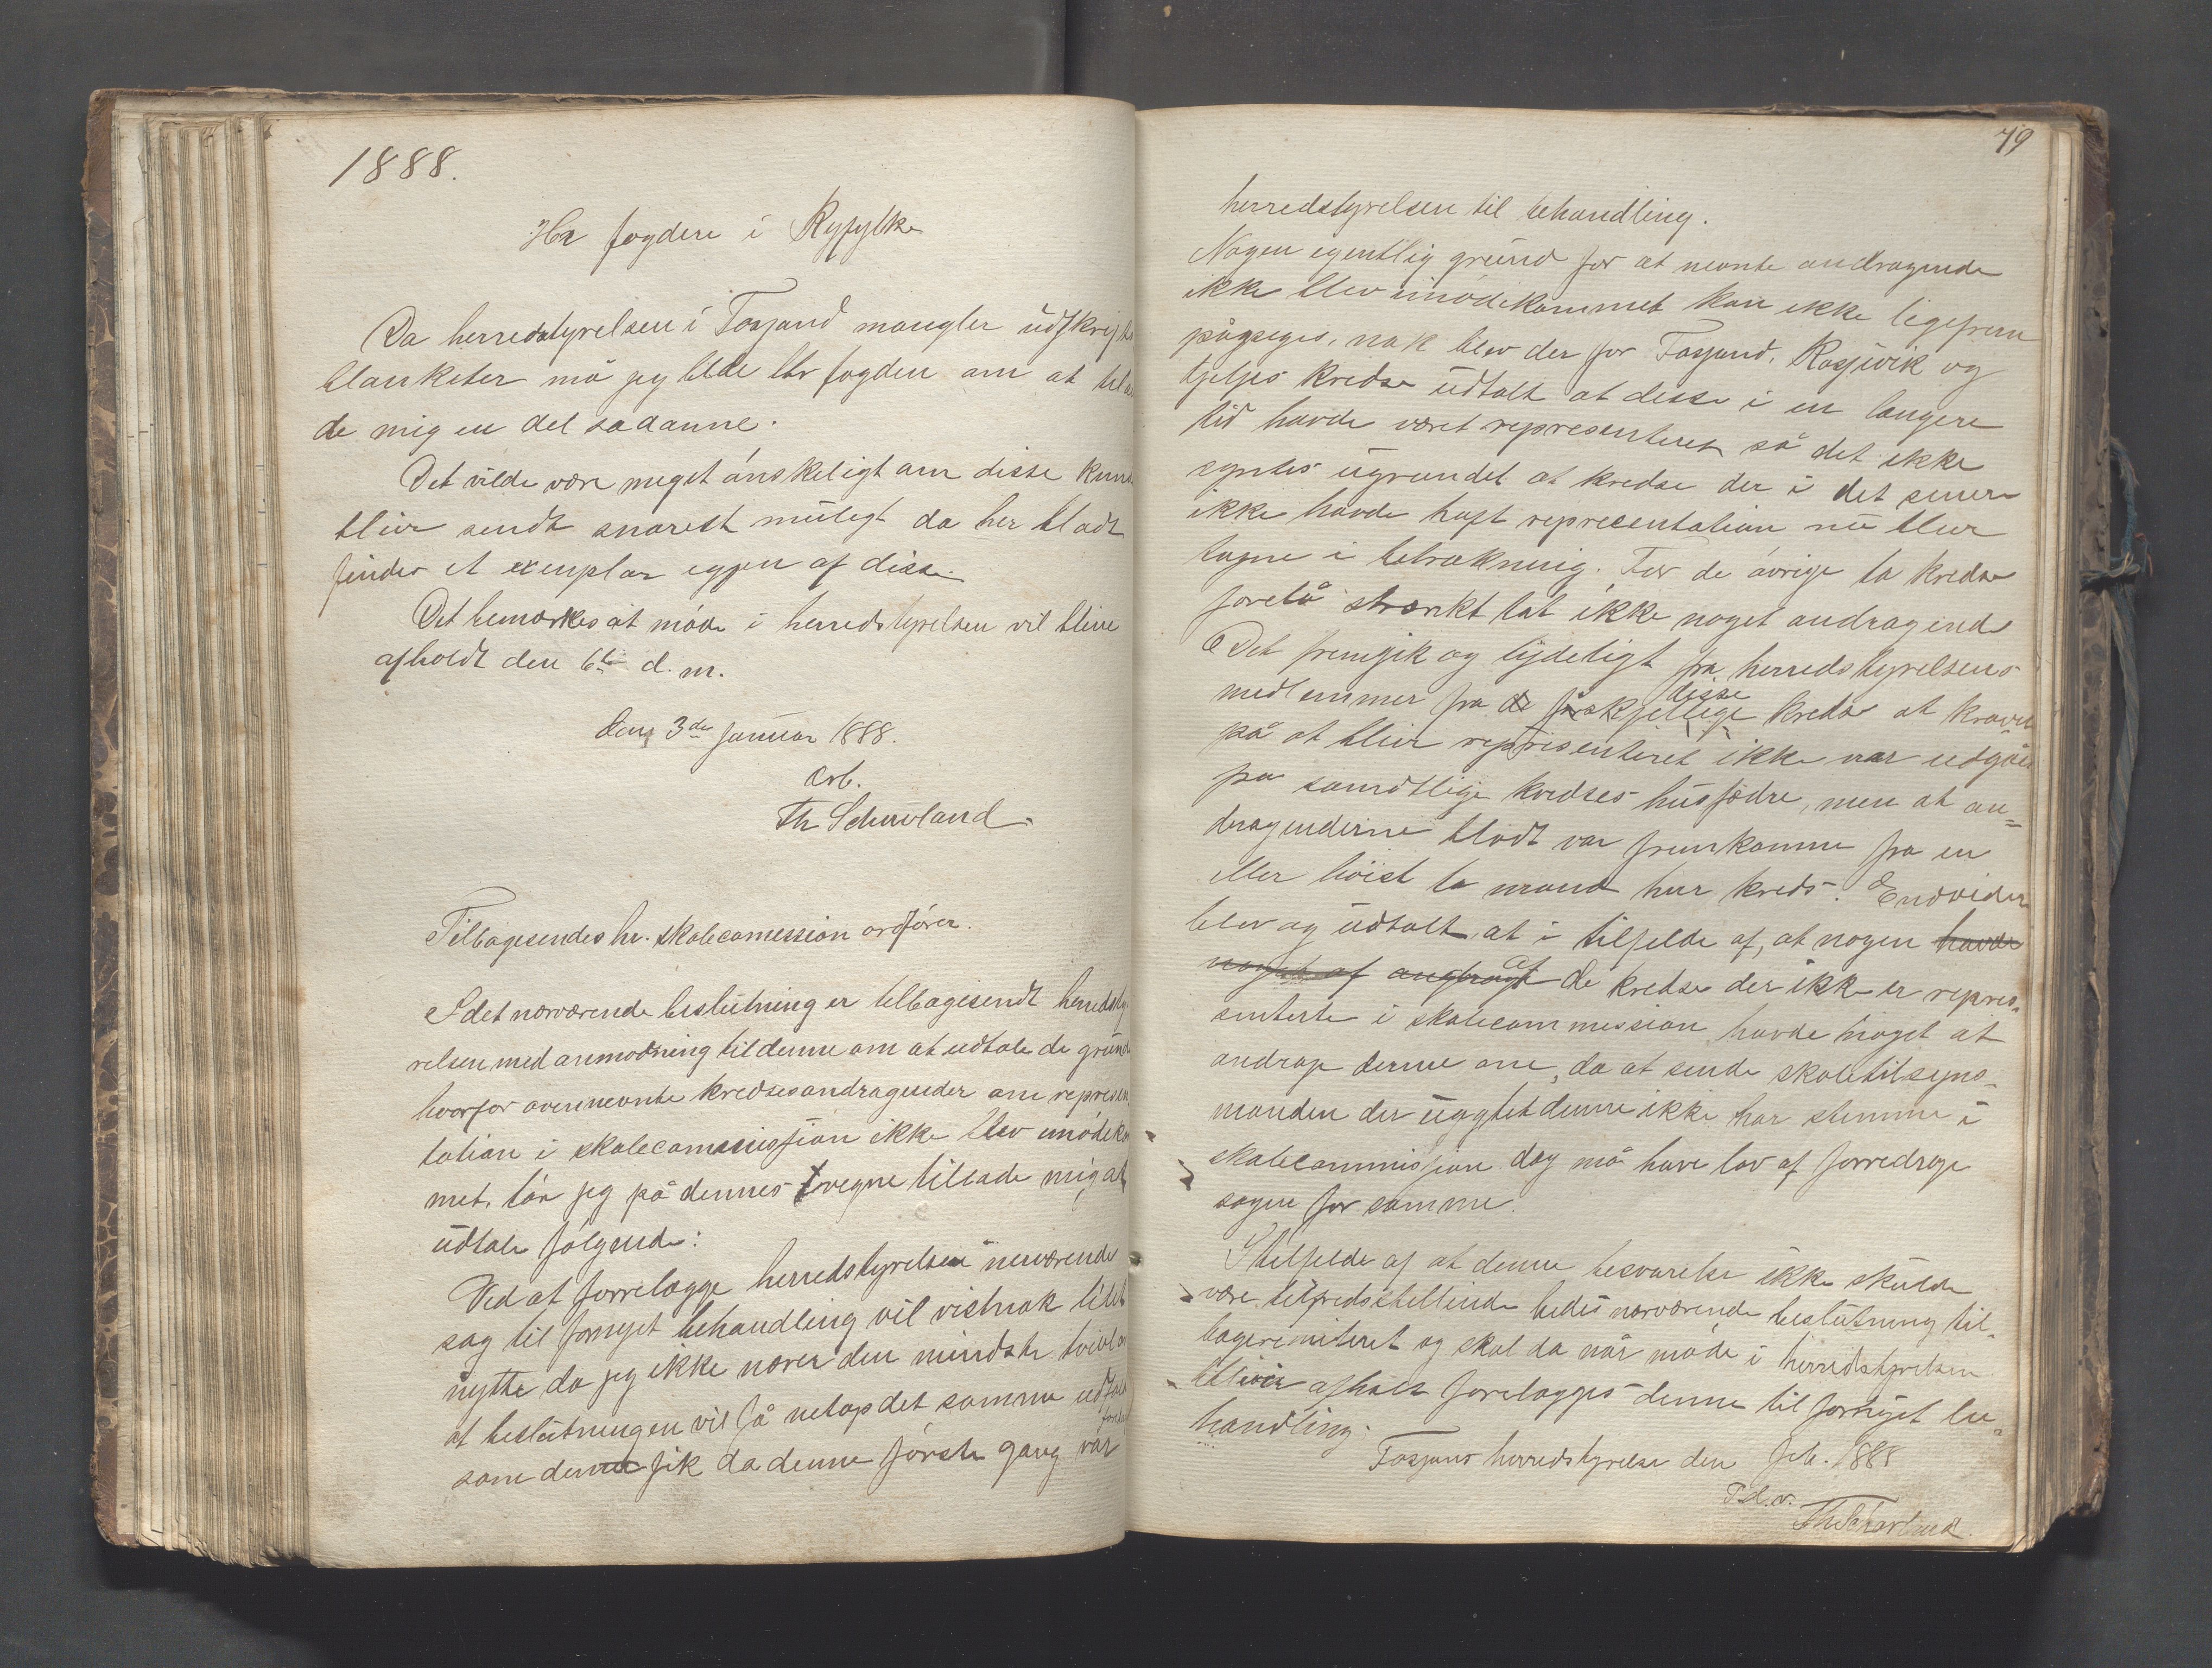 1888.
Hr fogden i Ryfylke
Da herredstyrelsen i Fossand mangler udskrifts
blanketer må jeg bede Hr fogden om at
de mig en del sadanne.
Det vilde være meget ønskeligt om disse kunde
blive sendt snarest muligt da her bladt
findes et exemplar igjen af disse.
Det bemærkes at møde i herredstyrelsen vil blive
afholdt den 6te d. m.
den 3de Januar 1888.
Arb.
Th
Tilbagesendes hr. skolecomission ordfører.
I det nærværende beslutning er tilbagesendt herredsty
relsen med anmodning til denne om at udtale de grunde
hvorfor ovennevnte kredsesandragender om represen
tation i skolecommissjion ikke blev imødekom
met, tør jeg på dennes vegne tillade mig at
udtale følgende:
Ved at forrelægge herredstyrelsen nerværende
sag til fornyet behandling vil vistnok lidet
nytte da jeg ikke nærer den mindste tvivl om
at beslutningen vil få netop det samme udfald
som denne fik da denne første gang var
79
herredstyrelsen til behandling.
Nogen egentlig grund for at nevnte andragende
ikke blev imødekommet kan ikke ligefrem
påpeges, nok blev der for Fossand, og
kredse udtalt at desse i en længere
tid havde været representeret så det ikke
syntes ugrundet at kredse der i det senere
ikke havde haft representation nu blev
tagne i betrakning. For de øvrige to kredse
forelå strænkt tat ikke noget andragende
Det fremgik og tydeligt fra herredstyrelsens
medlemmer fra disse kredse at kravet
på at blive representeret ikke var udgået
fra samdtlige kredses husfædre, men at an=
dragenderne blodt var fremkomne fra en
eller høist to mand hver kreds. Endvidere
blev og udtalt at i tilfelde af, at nogen havde
noget af af de kredse der ikke er repres-
enterte i skolecommission havde noget at
andrage denne om, da at sende skoletilsyns-
manden der uagtet denne ikke har stemme i
skolecommisjion dog må have lov af forredrage
sagen for samme.
I tilfelde af at denne besvarelse ikke skulde
være tilfredsstillende bedes nærværende beslutning til-
bageremiteret og skal da når møde i herredstyrelsen
bliver afholt forelægges denne til fornyet be-
handling.
Fossans herredstyrelse den Feb. 1888